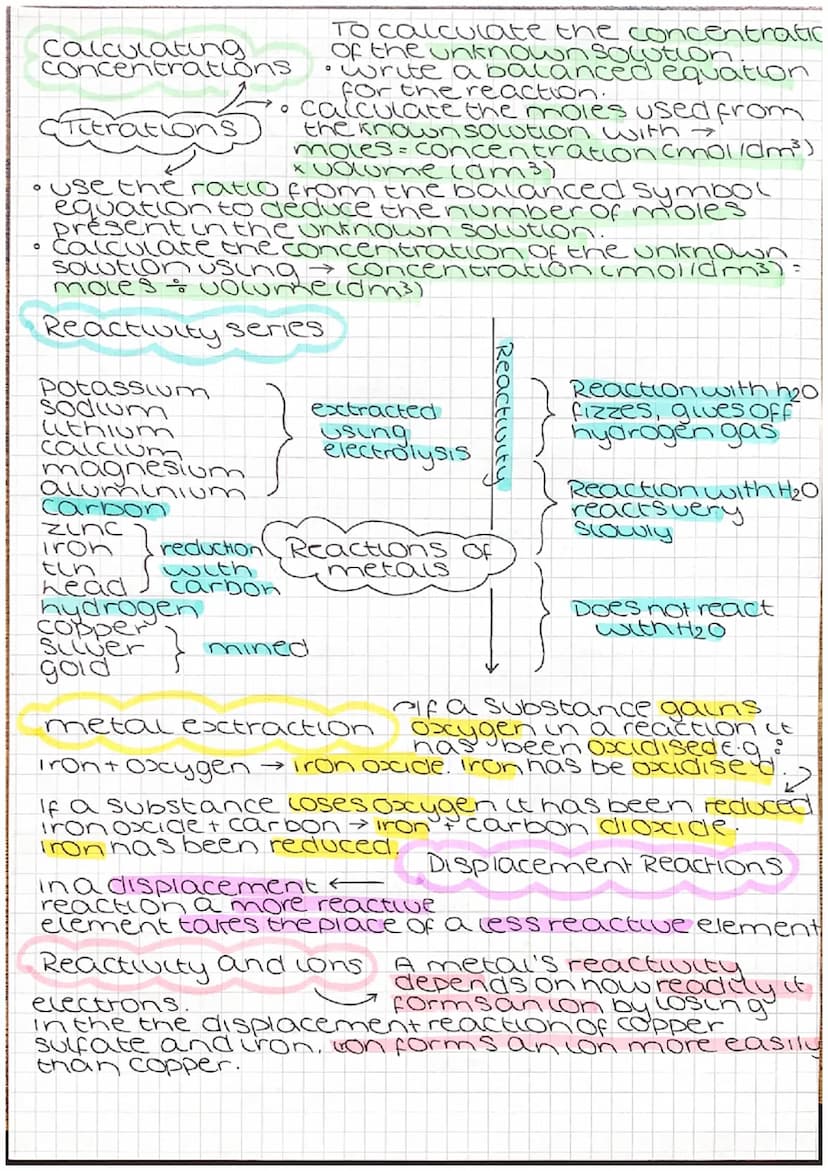 Calculating
concentrations
Titrations
To calculate the concentratic
of the unknown solution.
• write a balanced equation
for the reaction.
• calculate the moles used from
the known solution with →
moles = concentration (mol/dm³)
× volume (dm³)
• use the ratio from the balanced symbol
equation to deduce the number of moles
present in the unknown solution.
• calculate the concentration of the unknown
solution using → concentration (mol/dm³) =
moles ÷ volume (dm³)
Reactivity series
potassium
sodium
lithium
calcium
magnesium
aluminium
carbon
zinc
iron
tin
head
hydrogen
copper
silver
gold
extracted
using
electrolysis
reduction
with
carbon
mined
Reactivity
Reactions of
metals
Reaction with h2o
fizzes, gives off
hydrogen gas
Reaction with H2O
reacts very
slowly
Does not react
with H2O
metal exctraction
If a substance gains
oxygen in a reaction it
has been oxidised e.g:
iron + oxygen → iron oxide. iron has be oxidised.
If a substance loses oxygen it has been reduced
iron oxide + carbon → iron + carbon dioxide.
iron has been reduced.
Displacement Reactions
in a displacement ←
reaction a more reactive
element takes the place of a less reactive element
Reactivity and ions
A metal's reactivity
depends on how readily it
forms an ion by losing
electrons.
in the the displacement reaction of copper
sulfate and iron, iron forms an ion more easily
than copper.